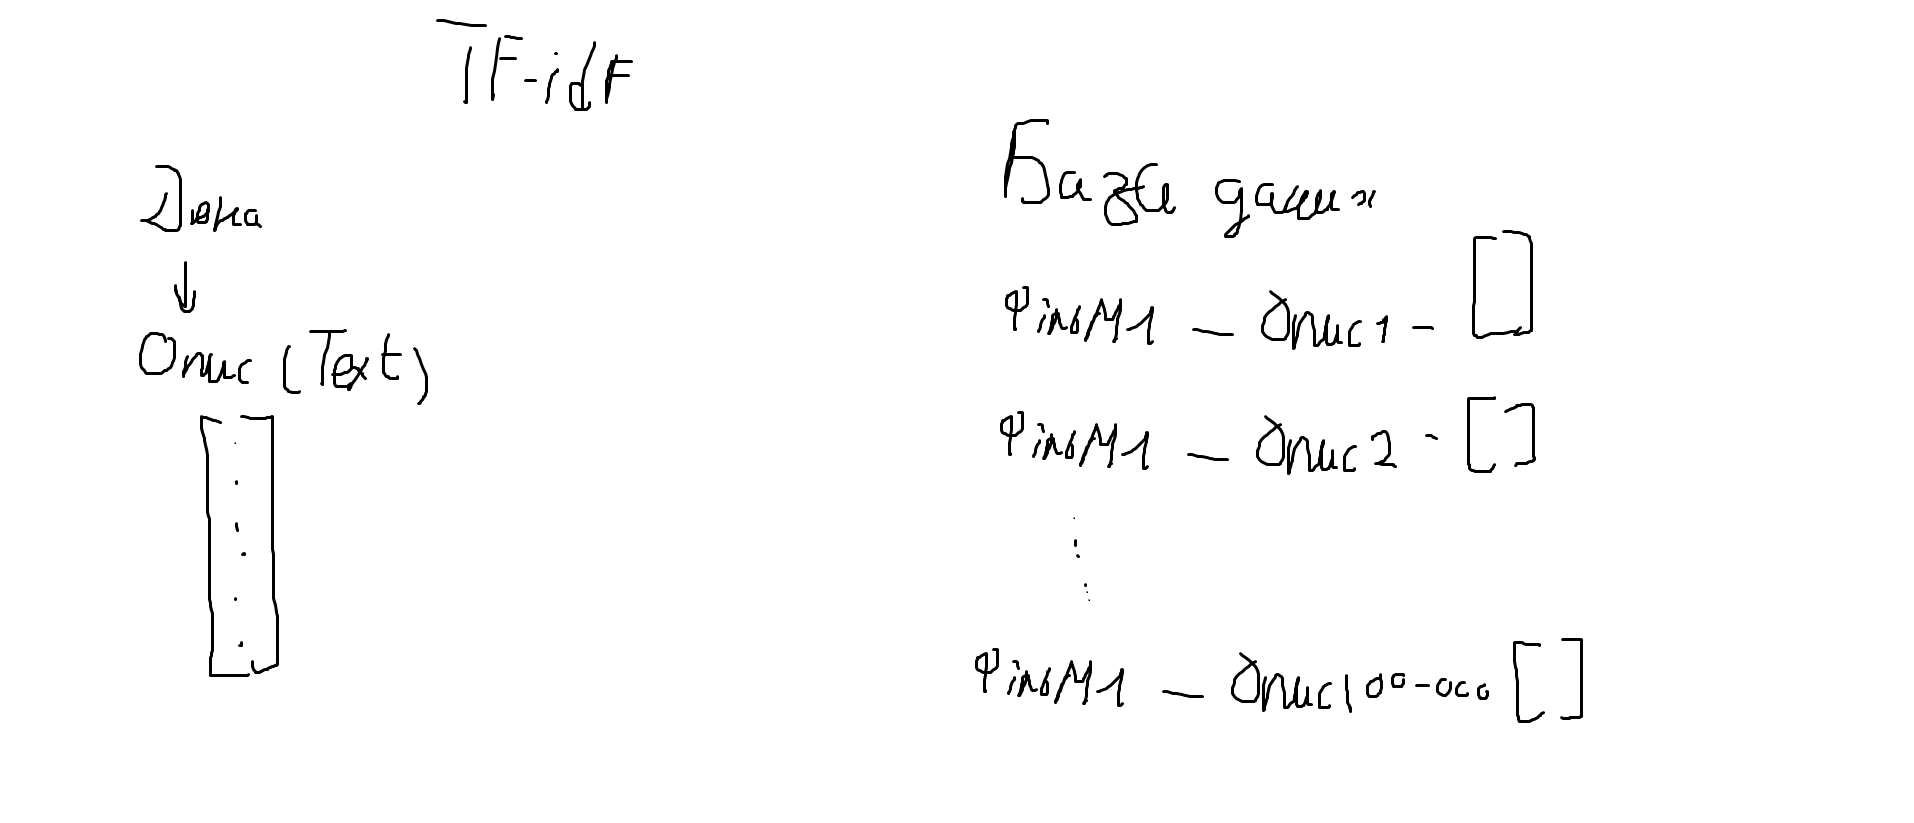 TF-idf
Дюна
Опис (Text)
База даних
Фільм1 - Опис1 - []
Фільм1 - Опис2 - []
Фільм1 - Опис100-000 []